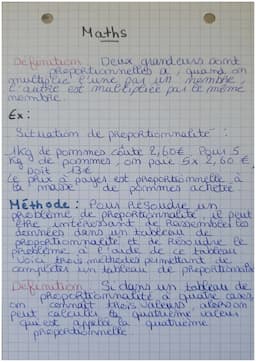 Maths
Définition: Deux grandeurs sont
proportionnelles si, quand on
multiplie l'une par un nombre,
l'autre est multipliée par le même
nombre.
Ex:
Situation de proportionnalité :
1kg de pommes coûte 2,60€. Pour 5
kg de pommes, on paie 5x 2,60 €
soit 13€
Le prix à payer est proportionnelle à
la masse de pommes achetée
Méthode: Pour résoudre un
problème de proportionnalité, il peut
être intéressant de rassembler les
données dans un tableau de
proportionnalité et de résoudre le
problème à l'aide de ce tableau
Voici trois méthodes permettant de
compléter un tableau de proportionnalité
Définition: Si dans un tableau de
proportionnalité à quatre cases,
on connaît trois valeurs, alors on
peut calculer la quatrième valeur
qui est appelée la quatrième
proportionnelle